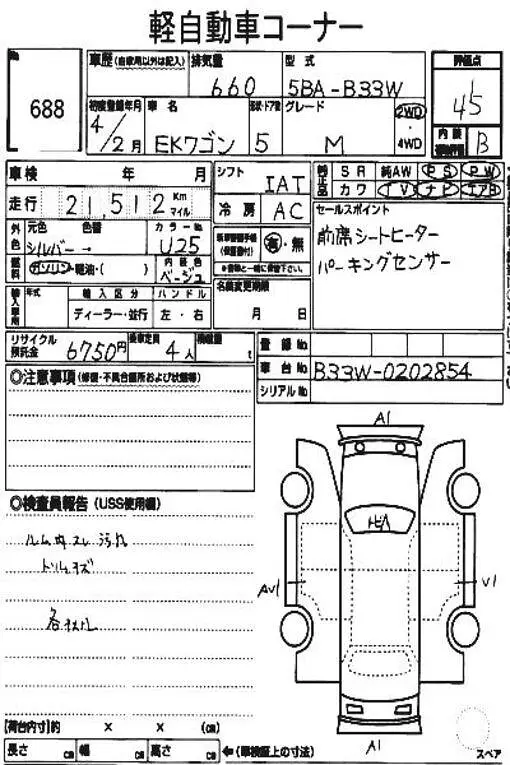 軽自動車コーナー
No 688
車歴(自家用以外は記入) 排気量 660 型式 5BA-B33W 評価点 4.5
初度登録年月 4/2月 車名 EKワゴン 形状・ドア数 5 グレード M 2WD・4WD 内装 B
車検 年 月 シフト IAT
純正品 SR 純AW PS PW
カワ TV ナビ エアB
走行 21,512 Km マイル 冷房 AC
セールスポイント
前席シートヒーター
パーキングセンサー
外色 元色 シルバー 色替 → カラーNo U25
有・無
燃料 ガソリン・軽油・( ) 内装色 ベージュ
名義変更期限 月 日
輸入車用 年式 輸入区分 ハンドル
ディーラー・並行 左・右
リサイクル預託金 6750円 乗車定員 4人 積載量 t
登録No
車台No B33W-0202854
シリアルNo
◎注意事項(修復・不具合箇所および状態等)
◎検査員報告(USS使用欄)
トリムキズ
A1
Av1
V1
A1
【荷台内寸】約 × × (cm)
長さ cm 幅 cm 高さ cm ←(車検証上の寸法)
スペア